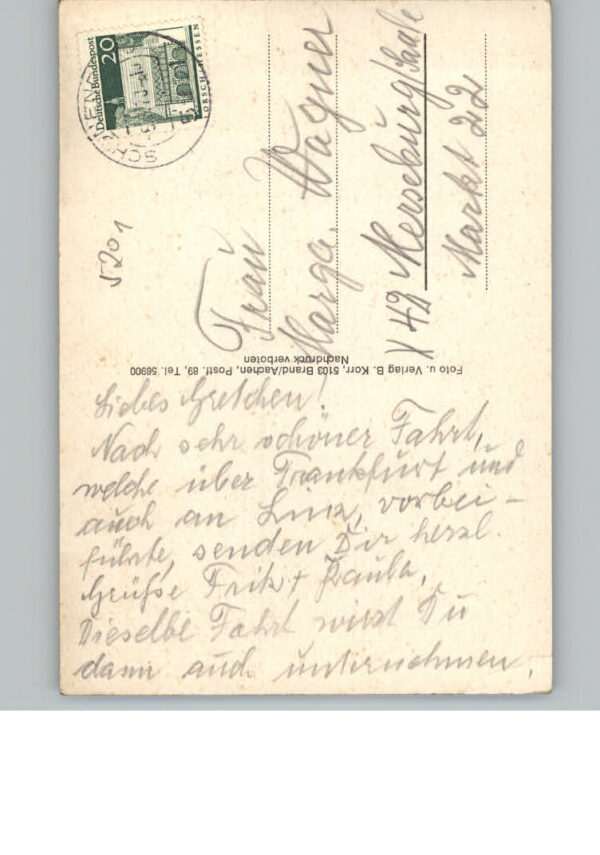 Deutsche Bundespost
20
LORSCH/HESSEN
5201
Frau
Marga Wagner
X 42 Merseburg/Saale
Markt 22
Foto u. Verlag B. Korr, 5103 Brand/Aachen, Postf. 89, Tel. 56900
Nachdruck verboten
Liebes Gretchen!
Nach sehr schöner Fahrt,
welche über Frankfurt und
auch an Linz, vorbei-
führte, senden Dir herzl.
Grüße Fritz +
Dieselbe Fahrt wirst Du
dann auch unternehmen.